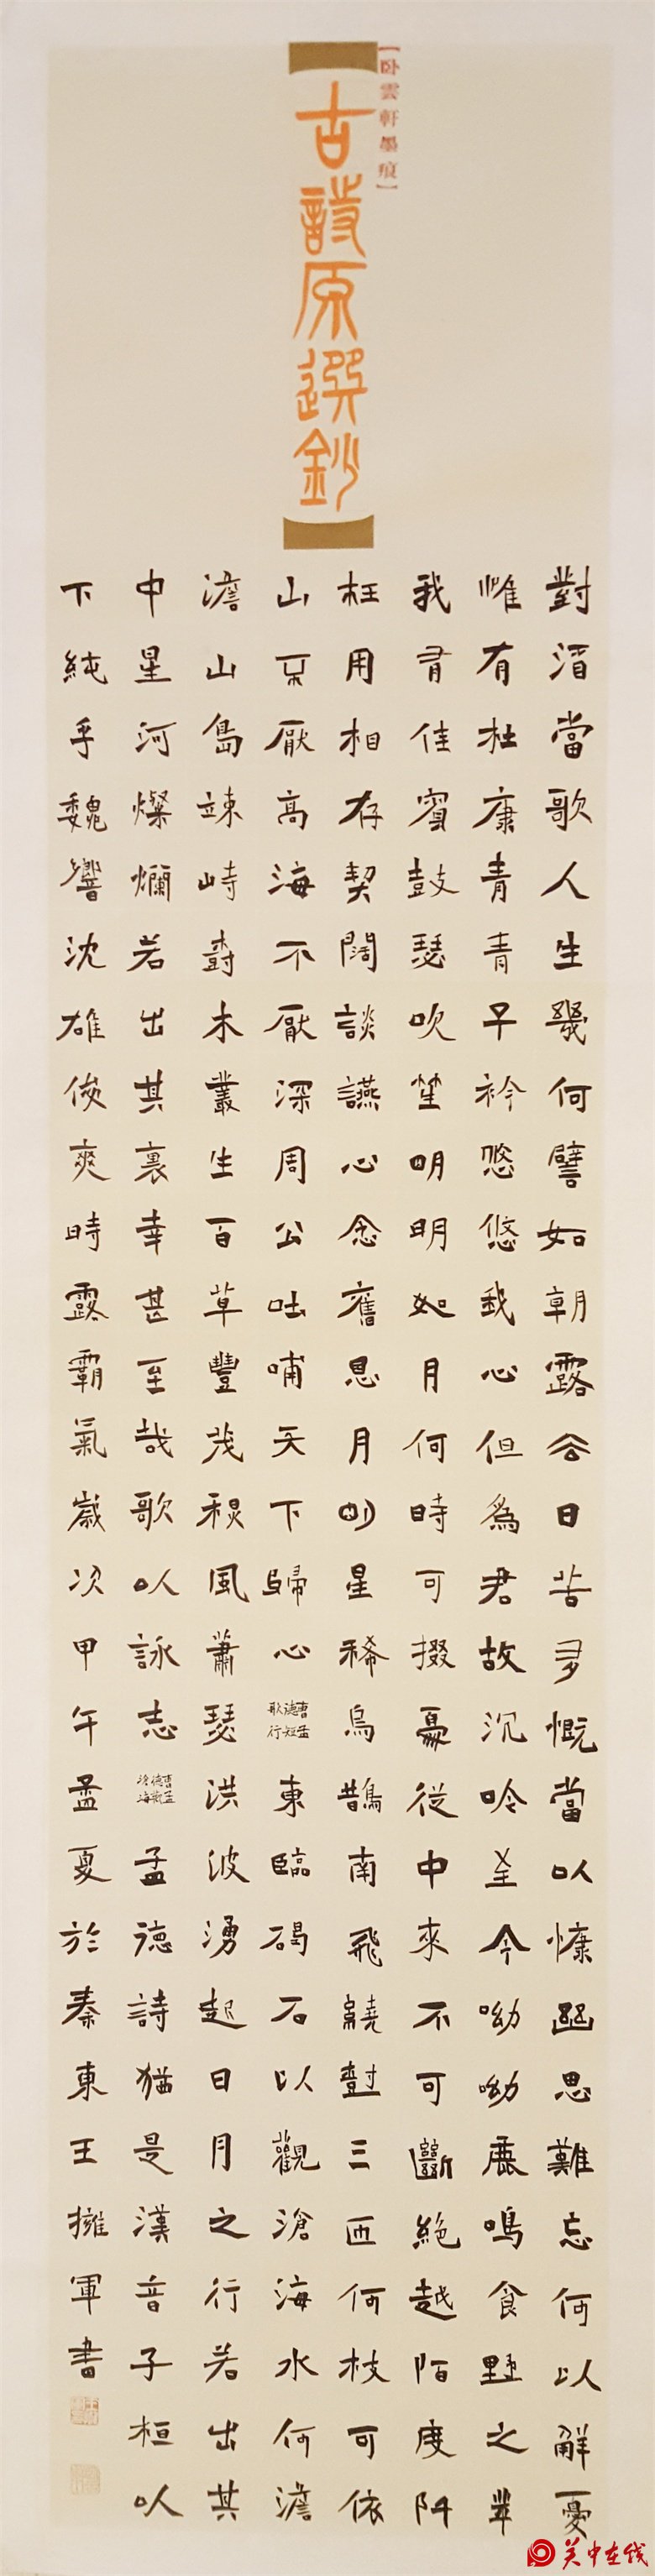 【卧雲軒墨痕】
古詩原選鈔
對酒當歌人生幾何譬如朝露去日苦多慨當以慷幽思難忘何以解憂
惟有杜康青青子衿悠悠我心但爲君故沉吟至今呦呦鹿鳴食野之苹
我有佳賓鼓瑟吹笙明明如月何時可掇憂從中來不可斷絕越陌度阡
枉用相存契闊談讌心念舊恩月明星稀烏鵲南飛繞樹三匝何枝可依
山不厭高海不厭深周公吐哺天下歸心曹孟德短歌行東臨碣石以觀滄海水何澹
澹山島竦峙樹木叢生百草豐茂秋風蕭瑟洪波湧起日月之行若出其
中星河燦爛若出其裏幸甚至哉歌以詠志曹孟德觀滄海孟德詩猶是漢音子桓以
下純乎魏響沈雄俊爽時露霸氣歲次甲午孟夏於秦東王擁軍書
关中在线